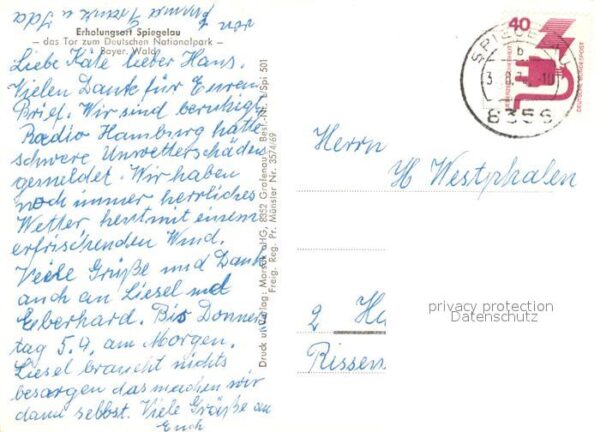 von
Erholungsort Spiegelau
— das Tor zum Deutschen Nationalpark —
Bayer. Wald
Liebe Käte lieber Hans.
Vielen Dank für Euren
Brief. Wir sind beruhigt
Radio Hamburg hatte
schwere Unwetterschäden
gemeldet. Wir haben
noch immer herrliches
Wetter heut mit einem
erfrischenden Wind.
Viele Grüße und Dank
auch an Liesel und
Eberhard. Bis Donners
tag 5.9. am Morgen.
Liesel braucht nichts
besorgen das machen wir
dann selbst. Viele Grüße an
Euch
Druck u. Verlag: 8352 Grafenau Best.-Nr. 1/Spi 501
Freig. Reg. Pr. Münster Nr. 3574/69
40
DEUTSCHE BUNDESPOST
SPIEGELAU
b
8356
Herrn
H Westphalen
2 Ha
Rissen
privacy protection
Datenschutz